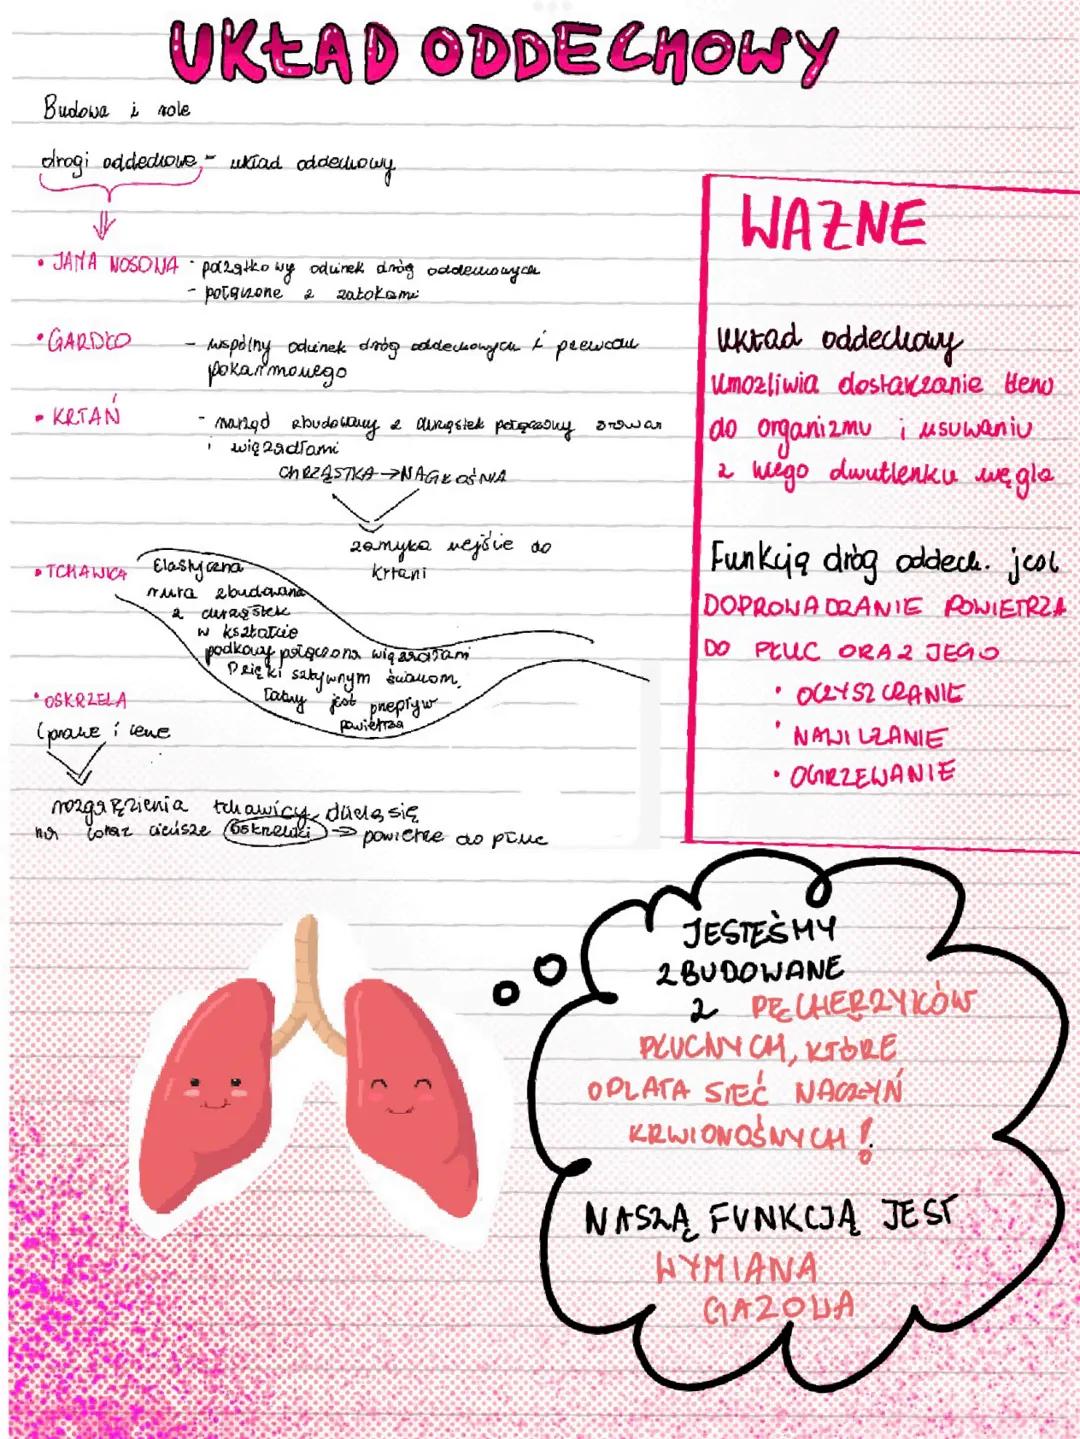 UKŁAD ODDECHOWY
Budowa i role
drogi oddechowe - układ oddechowy
• JAMA NOSOWA - początkowy odcinek dróg oddechowych
- połączone z zatokami
• GARDŁO - wspólny odcinek dróg oddechowych i przewodu
pokarmowego
• KRTAŃ - narząd zbudowany z chrząstek połączony
i więzadłami
CHRZĄSTKA → NAGŁOŚNIA
zamyka wejście do
krtani
• TCHAWICA Elastyczna
rura zbudowana
z chrząstek
w kształcie
podkowy połączona więzadłami
Dzięki sztywnym ścianom,
łatwy jest przepływ
powietrza
• OSKRZELA
(prawe i lewe
rozgałęzienia tchawicy, dzielą się
na coraz cieńsze oskrzeliki → powietrze do płuc
WAŻNE
Układ oddechowy
umożliwia dostarczanie tlenu
do organizmu i usuwaniu
z niego dwutlenku węgla
Funkcją dróg oddech. jest
DOPROWADZANIE POWIETRZA
DO PŁUC ORAZ JEGO
• OCZYSZCZANIE
• NAWILŻANIE
• OGRZEWANIE
JESTEŚMY
ZBUDOWANE
Z PĘCHERZYKÓW
PŁUCNYCH, KTÓRE
OPLATA SIEĆ NACZYŃ
KRWIONOŚNYCH!
NASZĄ FUNKCJĄ JEST
WYMIANA
GAZOWA